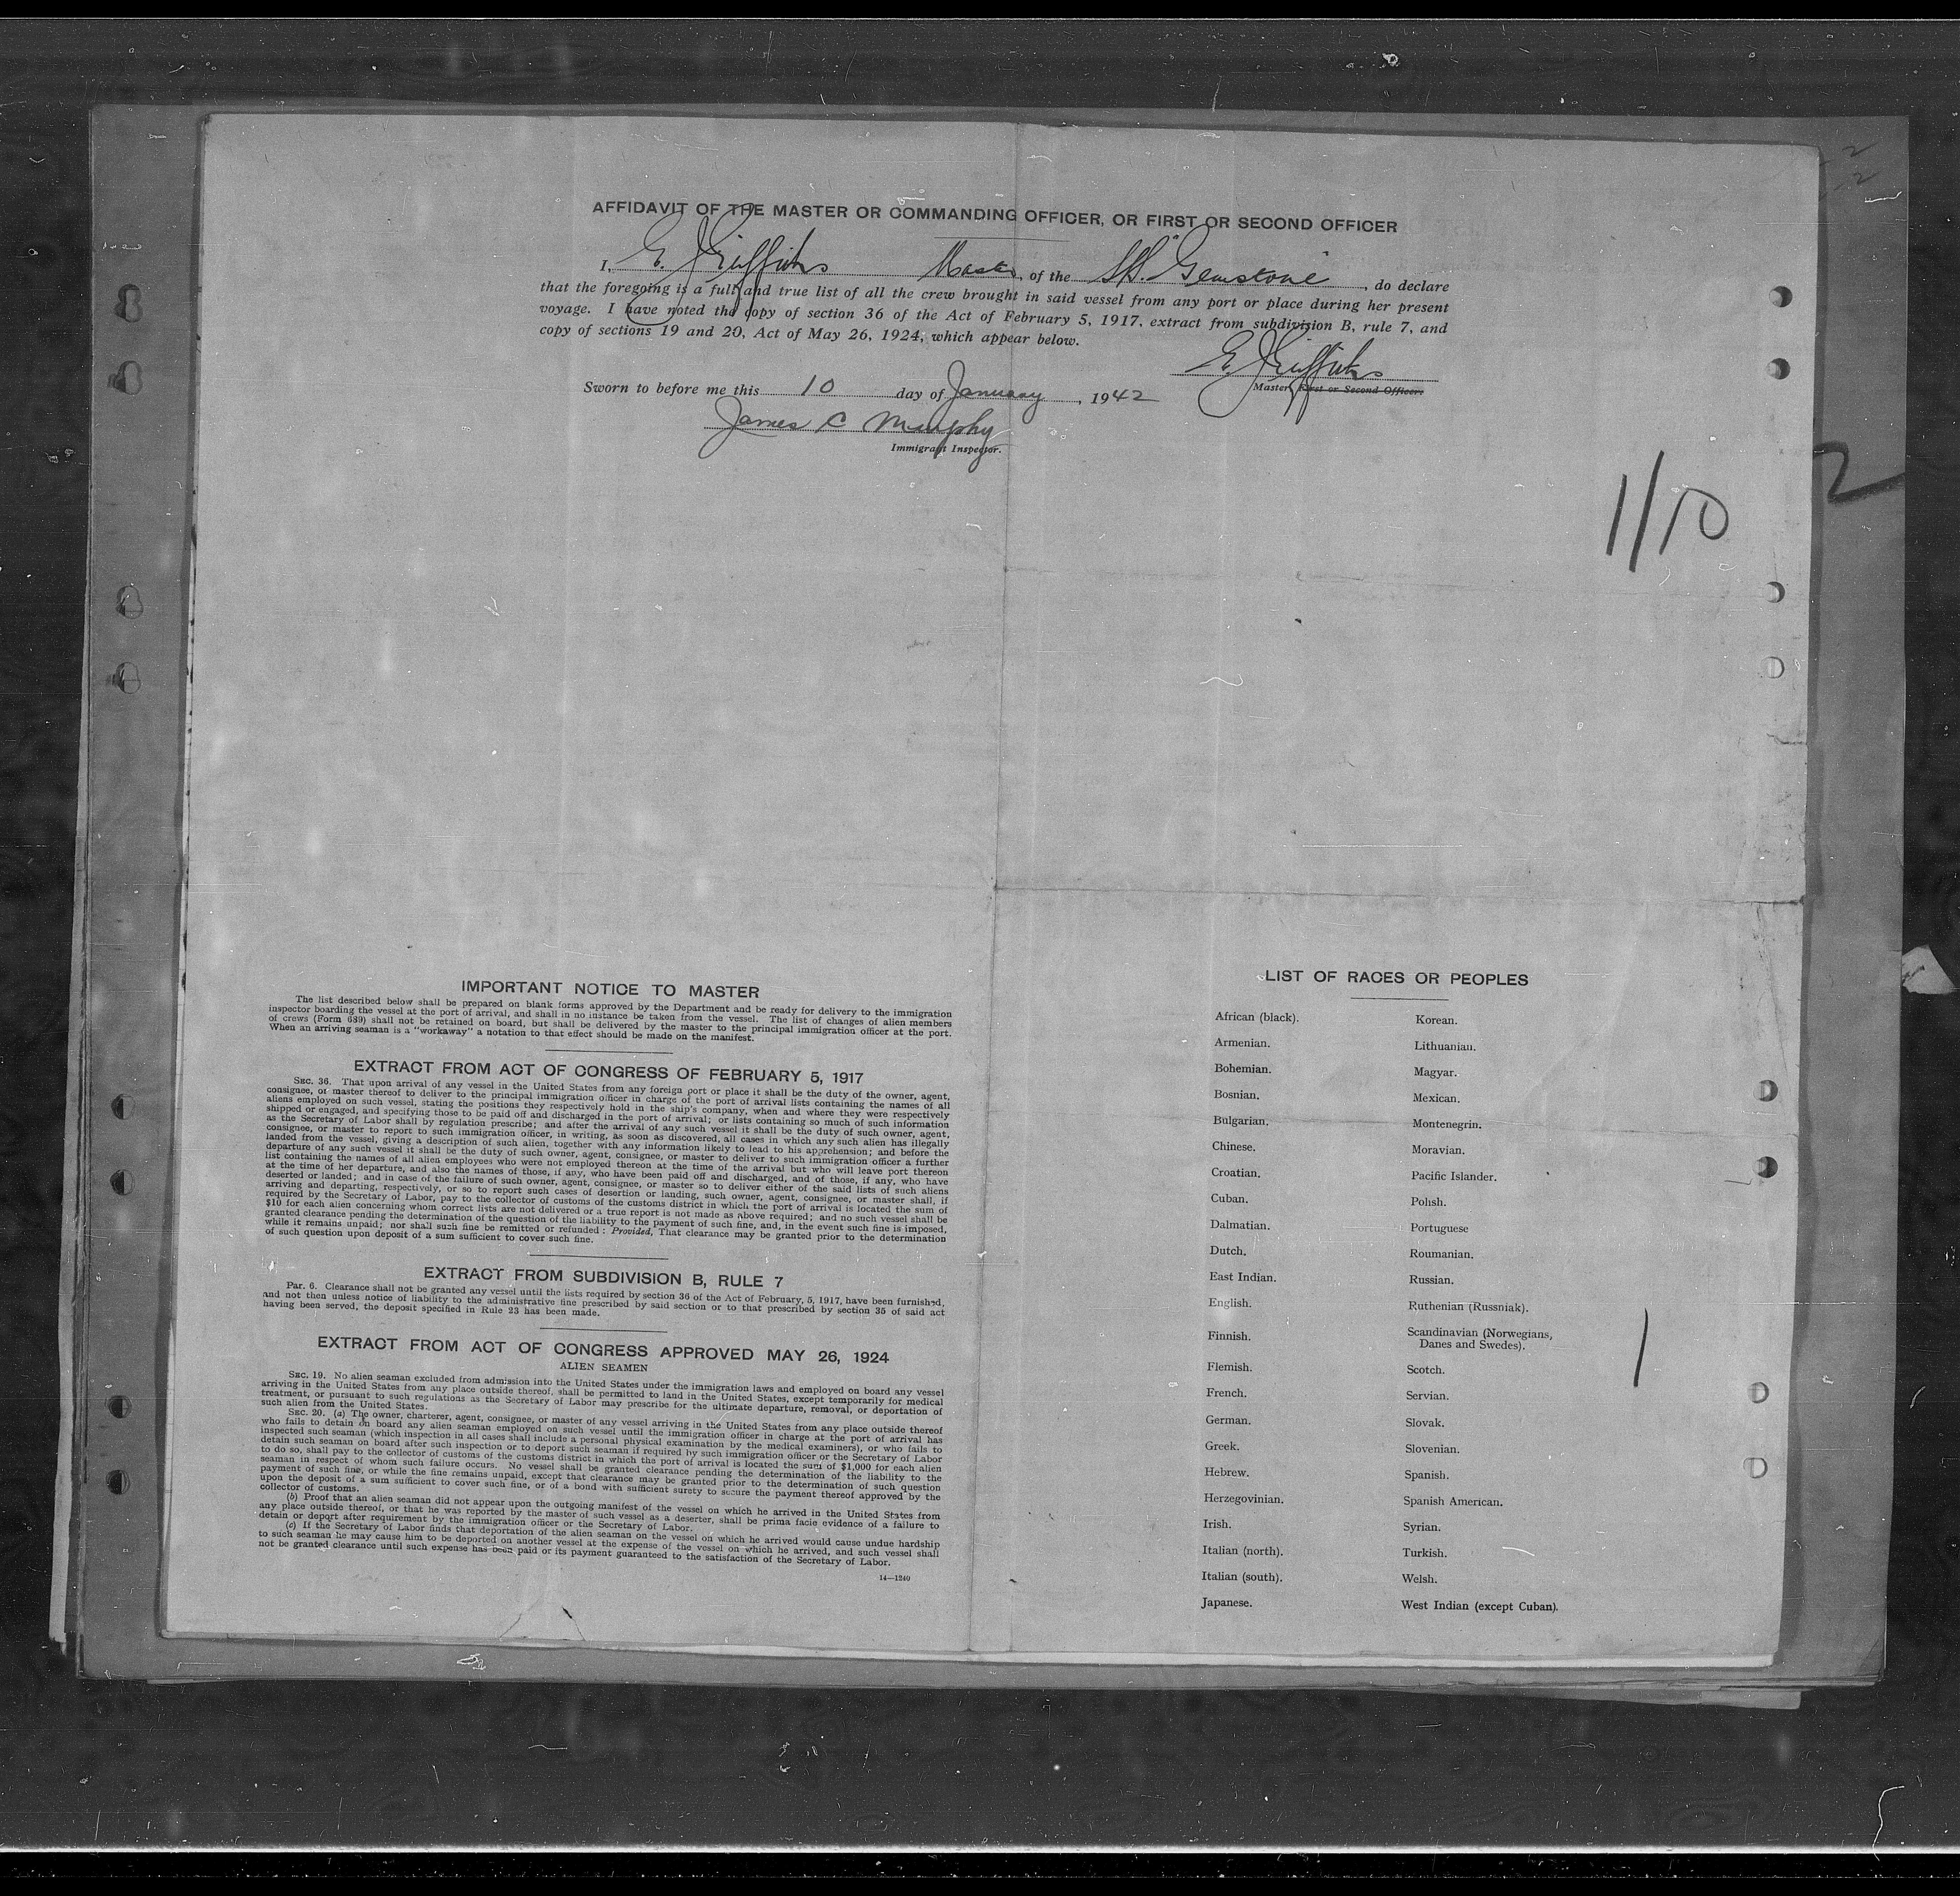 AFFIDAVIT OF THE MASTER OR COMMANDING OFFICER, OR FIRST OR SECOND OFFICER
I, E. J. Griffiths Master, of the S/S. "Gemstone", do declare
that the foregoing is a full and true list of all the crew brought in said vessel from any port or place during her present
voyage. I have noted the copy of section 36 of the Act of February 5, 1917, extract from subdivision B, rule 7, and
copy of sections 19 and 20, Act of May 26, 1924, which appear below.
E. J. Griffiths
Master, First or Second Officer.
Sworn to before me this 10 day of January, 1942
James C Murphy
Immigrant Inspector.
1/10
2
IMPORTANT NOTICE TO MASTER
The list described below shall be prepared on blank forms approved by the Department and be ready for delivery to the immigration
inspector boarding the vessel at the port of arrival, and shall in no instance be taken from the vessel. The list of changes of alien members
of crews (Form 689) shall not be retained on board, but shall be delivered by the master to the principal immigration officer at the port.
When an arriving seaman is a "workaway" a notation to that effect should be made on the manifest.
EXTRACT FROM ACT OF CONGRESS OF FEBRUARY 5, 1917
SEC. 36. That upon arrival of any vessel in the United States from any foreign port or place it shall be the duty of the owner, agent,
consignee, or master thereof to deliver to the principal immigration officer in charge of the port of arrival lists containing the names of all
aliens employed on such vessel, stating the positions they respectively hold in the ship's company, when and where they were respectively
shipped or engaged, and specifying those to be paid off and discharged in the port of arrival; or lists containing so much of such information
as the Secretary of Labor shall by regulation prescribe; and after the arrival of any such vessel it shall be the duty of such owner, agent,
consignee, or master to report to such immigration officer, in writing, as soon as discovered, all cases in which any such alien has illegally
landed from the vessel, giving a description of such alien, together with any information likely to lead to his apprehension; and before the
departure of any such vessel it shall be the duty of such owner, agent, consignee, or master to deliver to such immigration officer a further
list containing the names of all alien employees who were not employed thereon at the time of the arrival but who will leave port thereon
at the time of her departure, and also the names of those, if any, who have been paid off and discharged, and of those, if any, who have
deserted or landed; and in case of the failure of such owner, agent, consignee, or master so to deliver either of the said lists of such aliens
arriving and departing, respectively, or so to report such cases of desertion or landing, such owner, agent, consignee, or master shall, if
required by the Secretary of Labor, pay to the collector of customs of the customs district in which the port of arrival is located the sum of
$10 for each alien concerning whom correct lists are not delivered or a true report is not made as above required; and no such vessel shall be
granted clearance pending the determination of the question of the liability to the payment of such fine, and, in the event such fine is imposed,
while it remains unpaid; nor shall such fine be remitted or refunded: Provided, That clearance may be granted prior to the determination
of such question upon deposit of a sum sufficient to cover such fine.
EXTRACT FROM SUBDIVISION B, RULE 7
Par. 6. Clearance shall not be granted any vessel until the lists required by section 36 of the Act of February, 5, 1917, have been furnished,
and not then unless notice of liability to the administrative fine prescribed by said section or to that prescribed by section 35 of said act
having been served, the deposit specified in Rule 23 has been made.
EXTRACT FROM ACT OF CONGRESS APPROVED MAY 26, 1924
ALIEN SEAMEN
SEC. 19. No alien seaman excluded from admission into the United States under the immigration laws and employed on board any vessel
arriving in the United States from any place outside thereof, shall be permitted to land in the United States, except temporarily for medical
treatment, or pursuant to such regulations as the Secretary of Labor may prescribe for the ultimate departure, removal, or deportation of
such alien from the United States.
SEC. 20. (a) The owner, charterer, agent, consignee, or master of any vessel arriving in the United States from any place outside thereof
who fails to detain on board any alien seaman employed on such vessel until the immigration officer in charge at the port of arrival has
inspected such seaman (which inspection in all cases shall include a personal physical examination by the medical examiners), or who fails to
detain such seaman on board after such inspection or to deport such seaman if required by such immigration officer or the Secretary of Labor
to do so, shall pay to the collector of customs of the customs district in which the port of arrival is located the sum of $1,000 for each alien
seaman in respect of whom such failure occurs. No vessel shall be granted clearance pending the determination of the liability to the
payment of such fine, or while the fine remains unpaid, except that clearance may be granted prior to the determination of such question
upon the deposit of a sum sufficient to cover such fine, or of a bond with sufficient surety to secure the payment thereof approved by the
collector of customs.
(b) Proof that an alien seaman did not appear upon the outgoing manifest of the vessel on which he arrived in the United States from
any place outside thereof, or that he was reported by the master of such vessel as a deserter, shall be prima facie evidence of a failure to
detain or deport after requirement by the immigration officer or the Secretary of Labor.
(c) If the Secretary of Labor finds that deportation of the alien seaman on the vessel on which he arrived would cause undue hardship
to such seaman he may cause him to be deported on another vessel at the expense of the vessel on which he arrived, and such vessel shall
not be granted clearance until such expense has been paid or its payment guaranteed to the satisfaction of the Secretary of Labor.
14—1240
LIST OF RACES OR PEOPLES
African (black). Korean.
Armenian. Lithuanian.
Bohemian. Magyar.
Bosnian. Mexican.
Bulgarian. Montenegrin.
Chinese. Moravian.
Croatian. Pacific Islander.
Cuban. Polish.
Dalmatian. Portuguese
Dutch. Roumanian.
East Indian. Russian.
English. Ruthenian (Russniak).
Finnish. Scandinavian (Norwegians,
Danes and Swedes).
Flemish. Scotch.
French. Servian.
German. Slovak.
Greek. Slovenian.
Hebrew. Spanish.
Herzegovinian. Spanish American.
Irish. Syrian.
Italian (north). Turkish.
Italian (south). Welsh.
Japanese. West Indian (except Cuban).